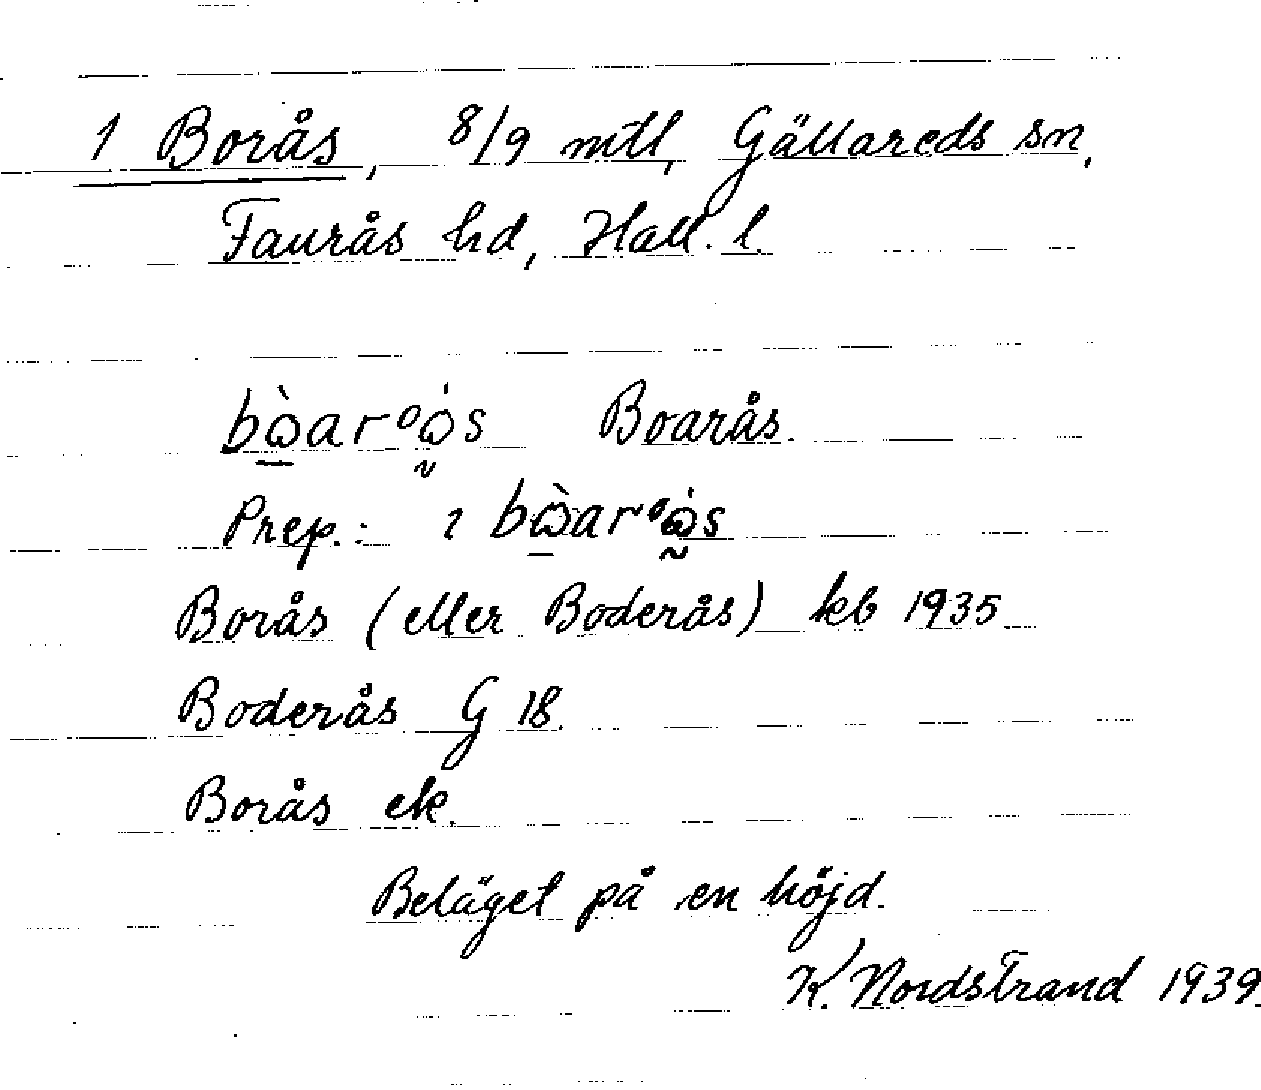 1 Borås, 8/9 mtl, Gällareds sn,
Faurås hd, Hall. l.
bὼ̲arºώ̰s Boarås.
Prep.: ı bὼ̲arºώ̰s
Borås (eller Boderås) kb 1935
Boderås G 18.
Borås ek.
Beläget på en höjd.
K. Nordstrand 1939.